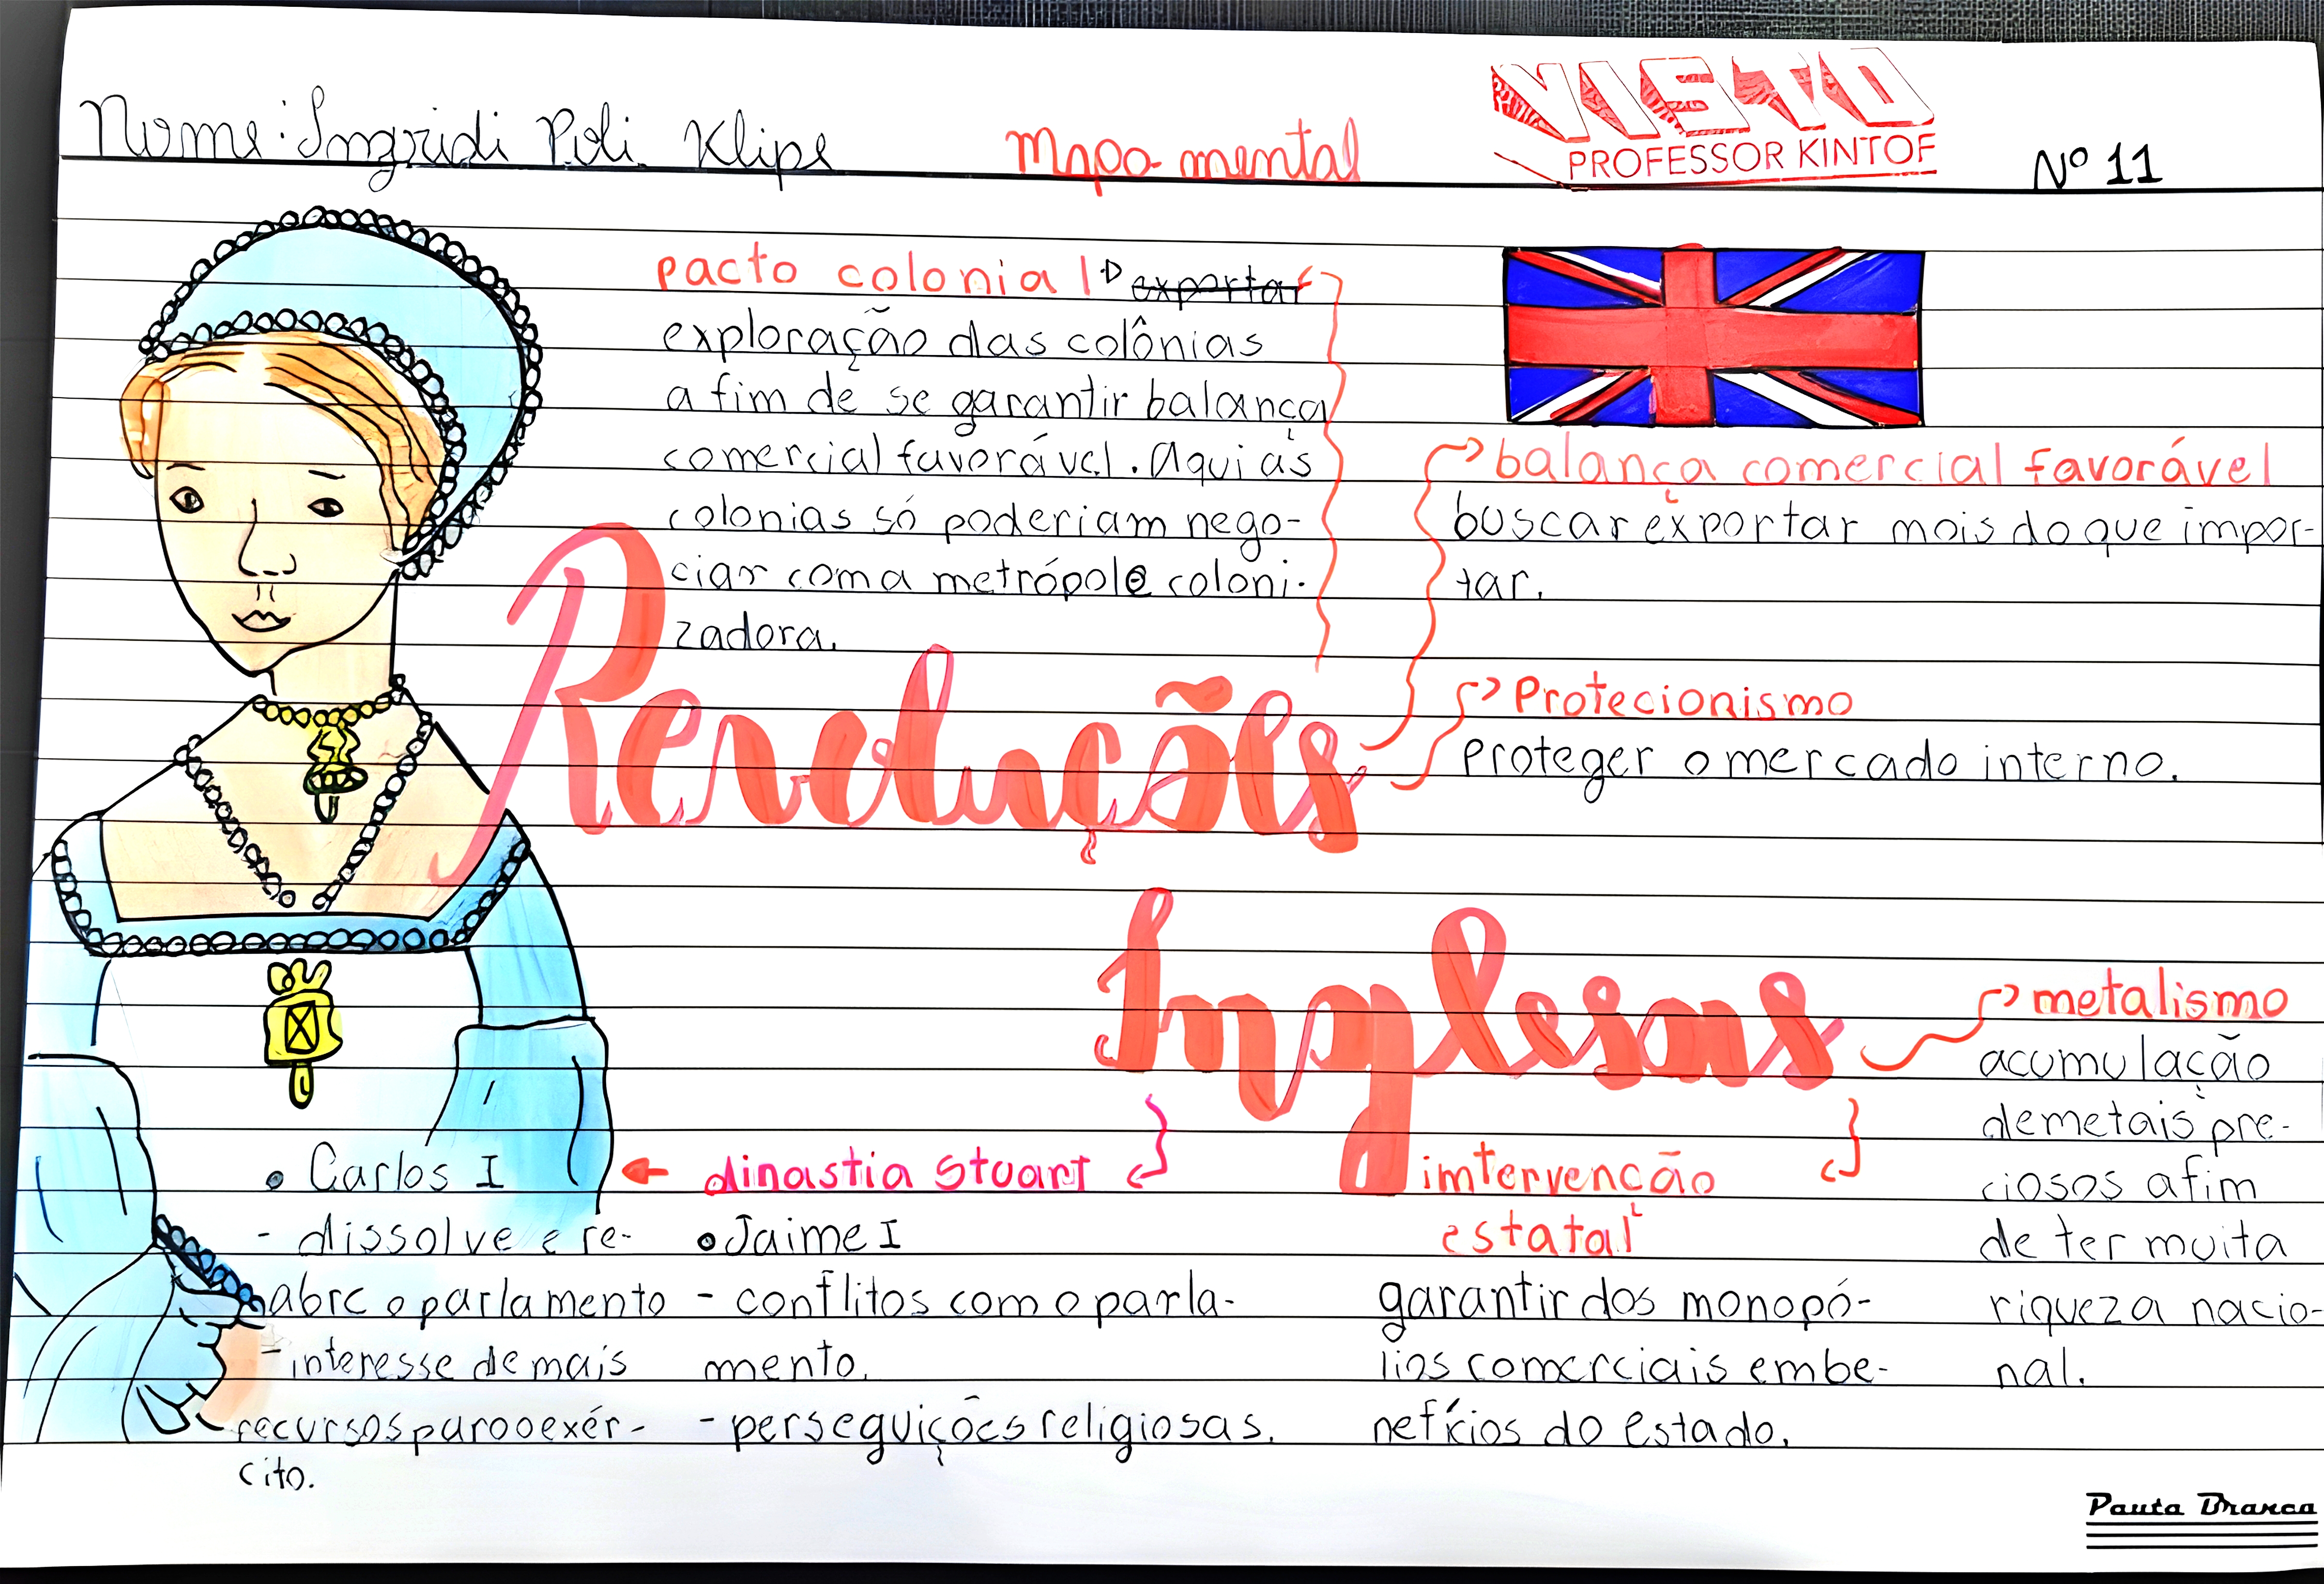 Nome: Ingridi Poli Klipe
Mapa mental
VISTO
PROFESSOR KINTOF
Nº 11
pacto colonial exportar
exploração das colônias
a fim de se garantir balança
comercial favorável. Aqui as
colonias só poderiam nego-
ciar com a metrópole coloni-
zadora.
balança comercial favorável
buscar exportar mais do que impor-
tar.
Protecionismo
proteger o mercado interno.
Revoluções
Inglesas
metalismo
acumulação
de metais pre-
ciosos a fim
de ter muita
riqueza nacio-
nal.
intervenção
estatal
garantir dos monopó-
lios comerciais em be-
nefícios do estado.
dinastia Stuart
• Jaime I
- conflitos com o parla-
mento.
- perseguições religiosas.
• Carlos I
- dissolve e re-
abre o parlamento
- interesse de mais
recursos para o exér-
cito.
Pauta Branca